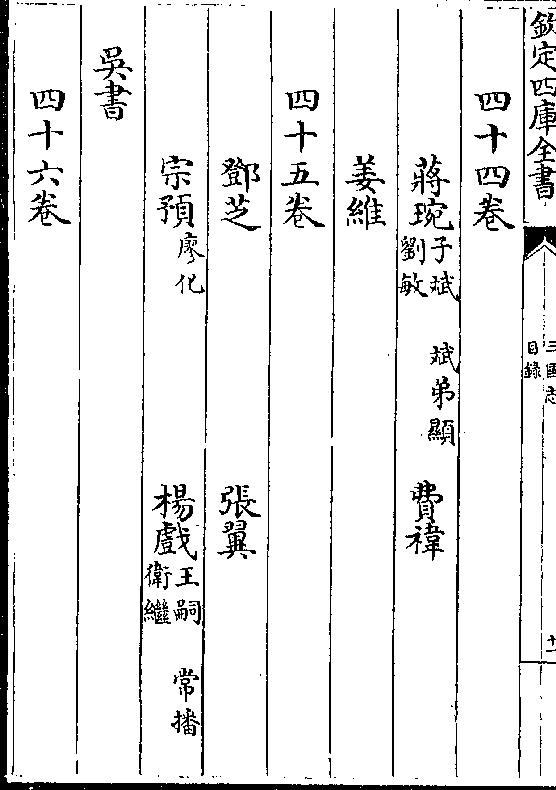 欽定四庫全書
三國志
目錄
十一
四十四卷
蔣琬子斌 斌弟顯 劉敏 費禕
姜維
四十五卷
鄧芝 張翼
宗預廖化 楊戲王嗣 常播 衛繼
吳書
四十六卷